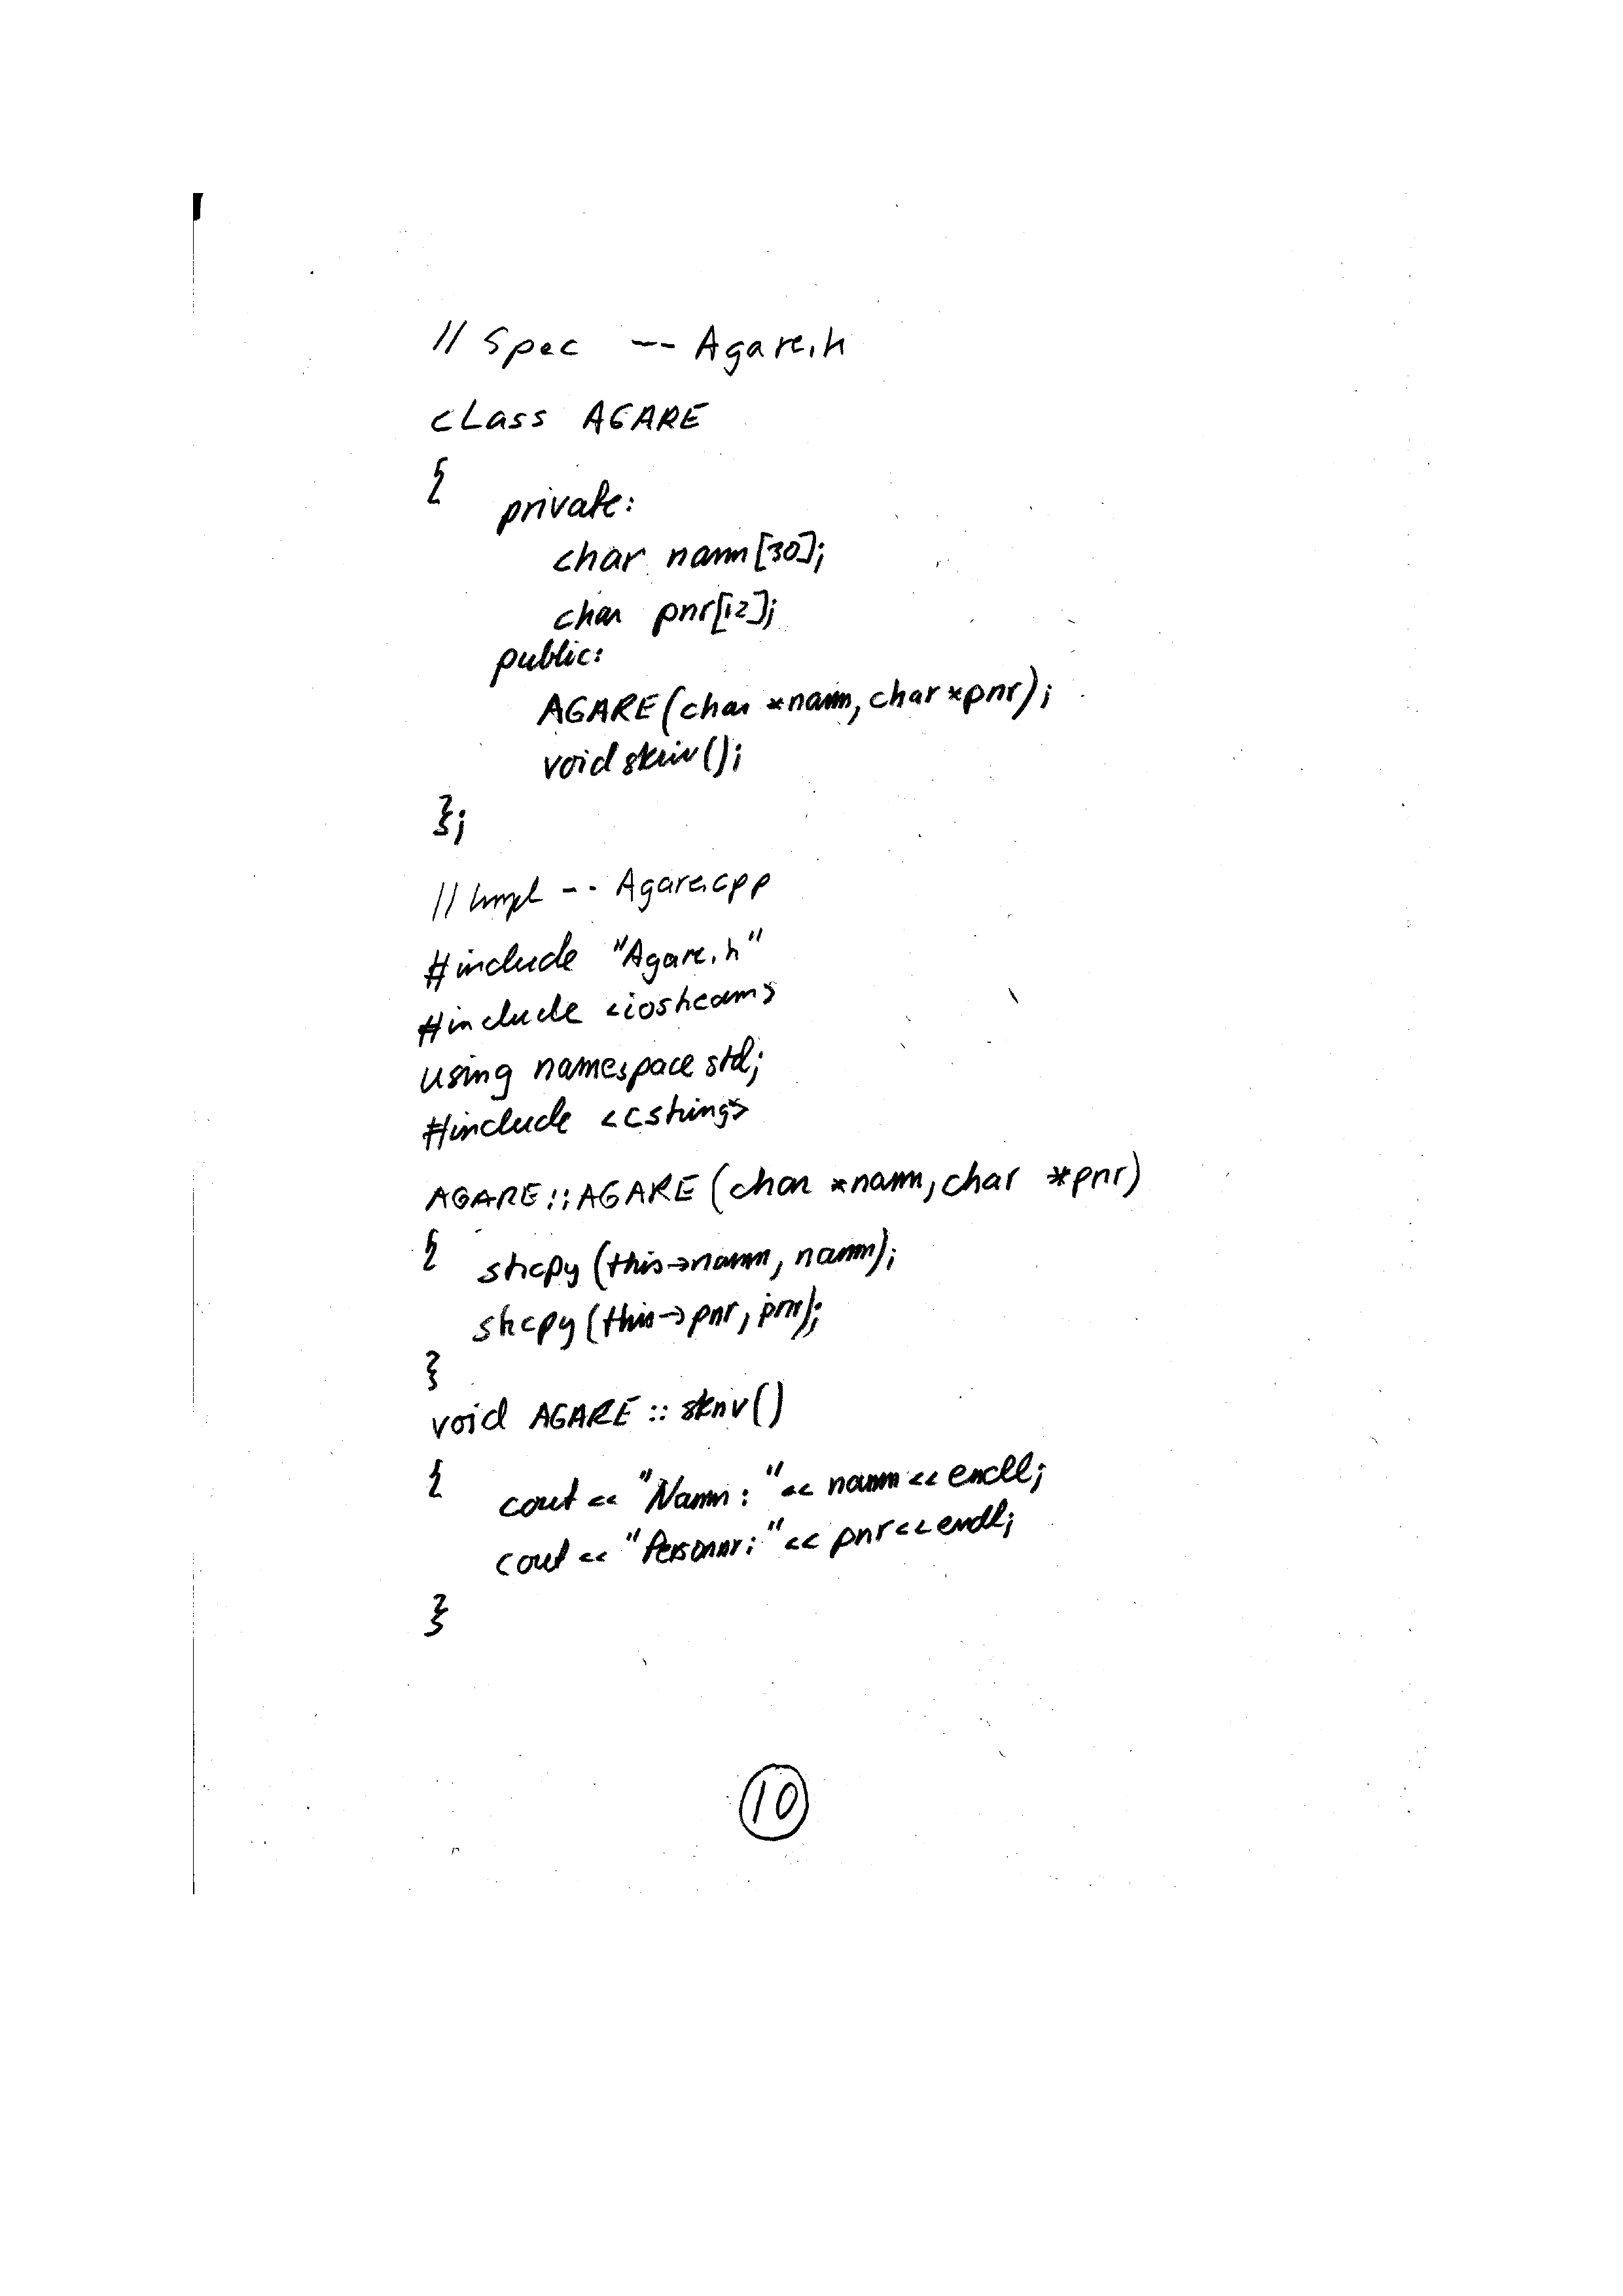 // Spec -- Agare.h
class AGARE
{
private:
char namn[30];
char pnr[12];
public:
AGARE(char *namn, char *pnr);
void skriv();
};
// Impl -- Agare.cpp
#include "Agare.h"
#include <iostream>
using namespace std;
#include <cstring>
AGARE::AGARE(char *namn, char *pnr)
{ strcpy(this->namn, namn);
strcpy(this->pnr, pnr);
}
void AGARE::skriv()
{ cout << "Namn: " << namn << endl;
cout << "Personnr: " << pnr << endl;
}
10